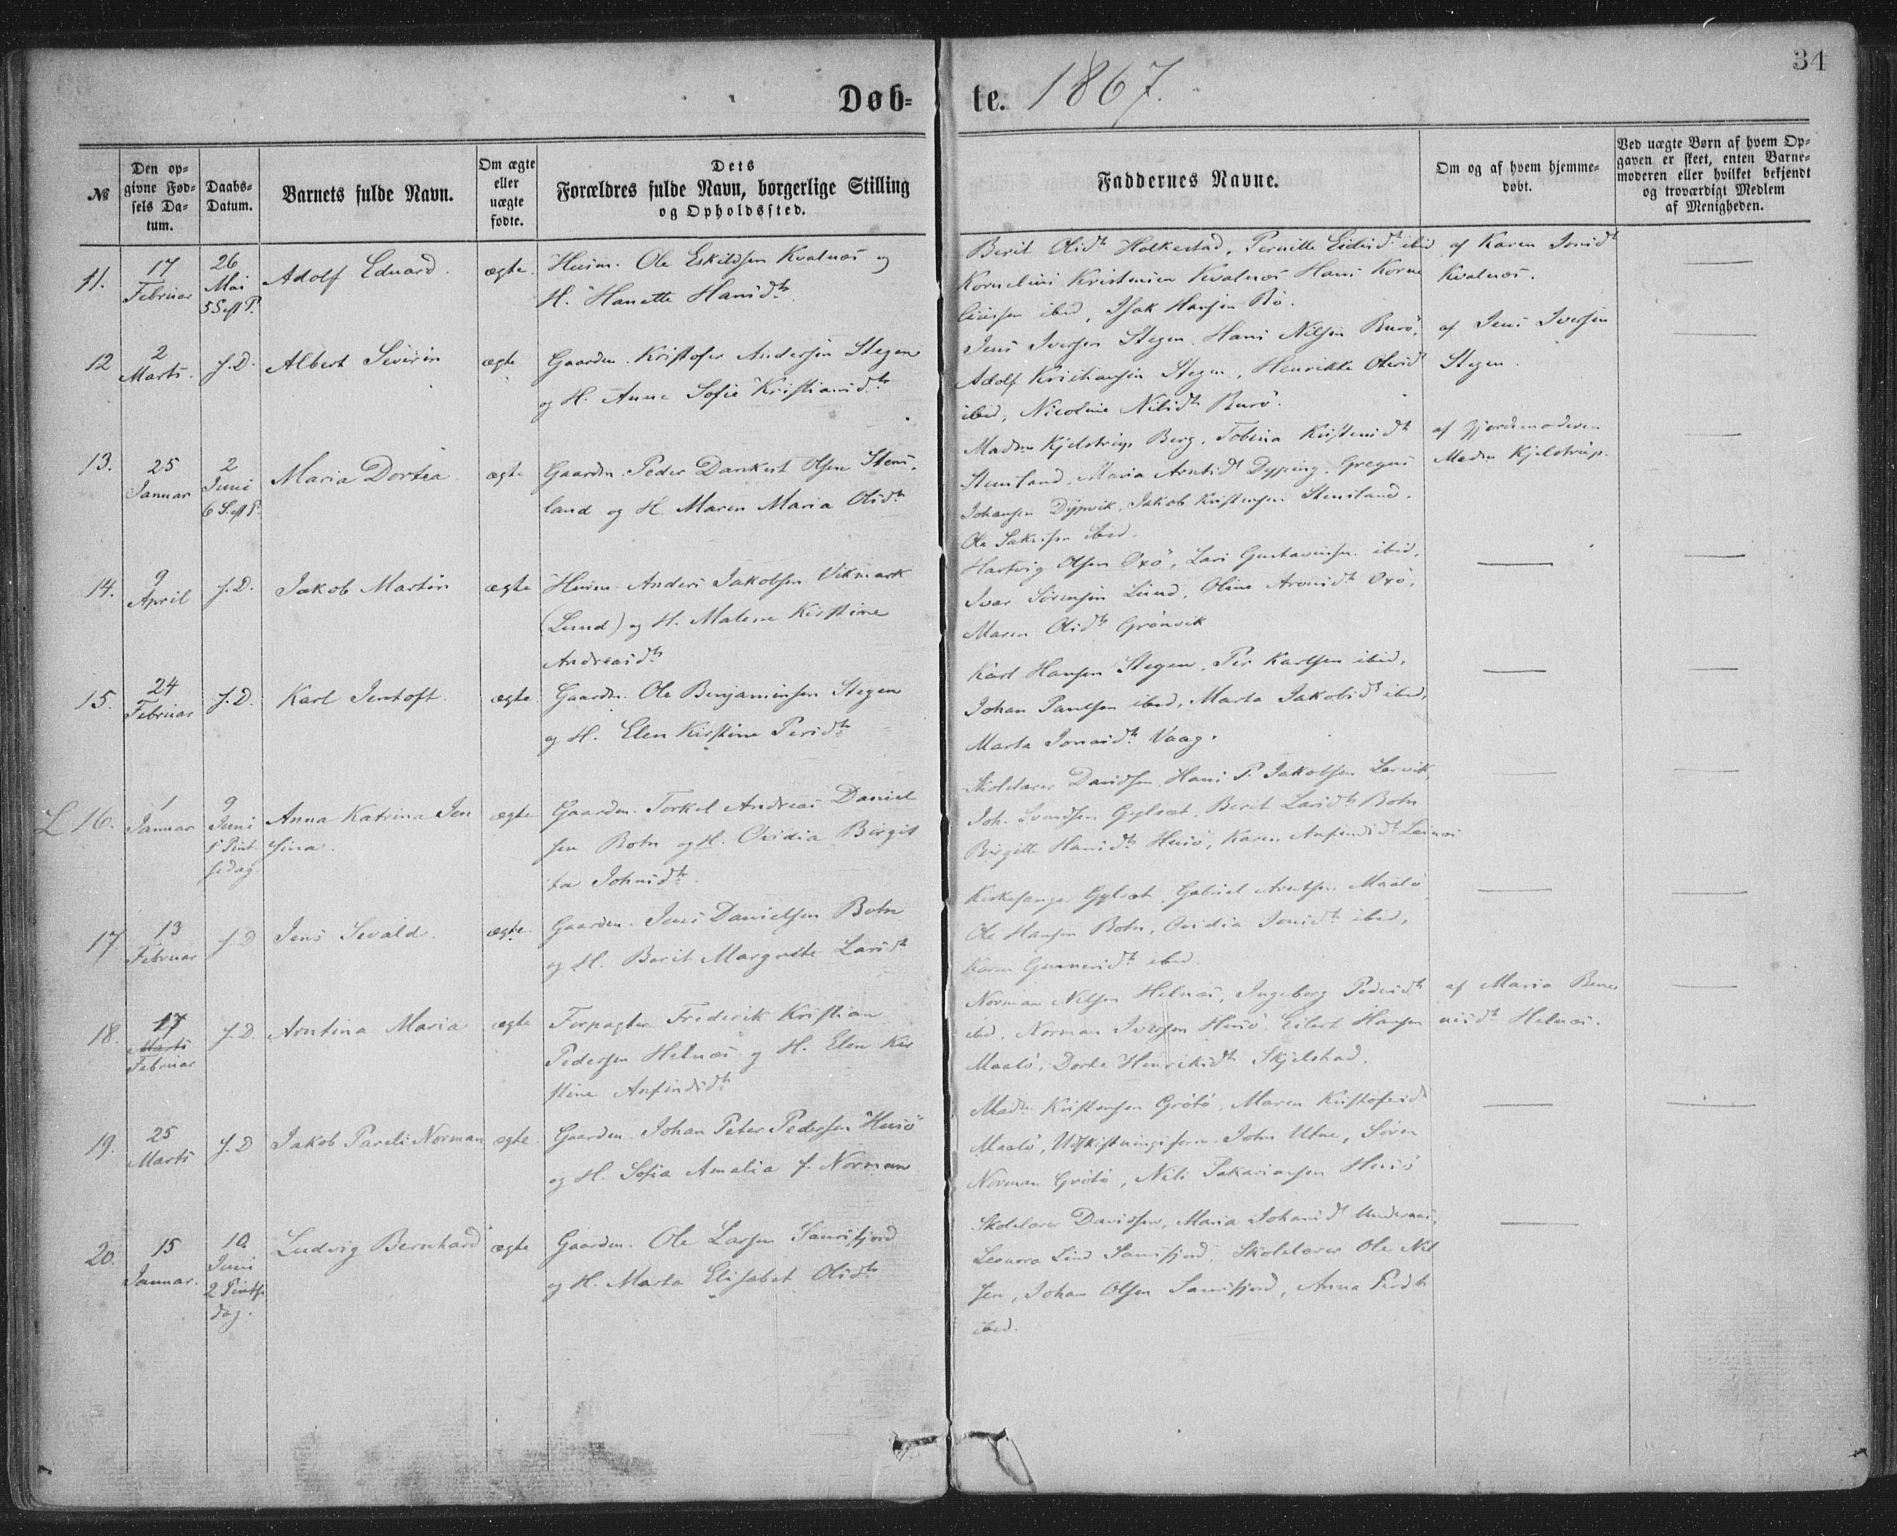 34
Døb- te. 1867.
№
Den op-
givne Fød-
sels Da-
tum.
Daabs-
Datum.
Barnets fulde Navn.
Om ægte
eller
uægte
fødte.
Dets
Forældres fulde Navn, borgerlige Stilling
og Opholdssted.
Faddernes Navne.
Om og af hvem hjemme-
døbt.
Ved uægte Børn af hvem Op-
gaven er skeet, enten Barne-
moderen eller hvilket bekjendt
og troværdigt Medlem
af Menigheden.
11.
17
Februar
26
Mai
5 S. eft P.
Adolf Eduard.
ægte.
Husm. Ole Eskildsen Kvalnæs og
H. Hanette Hansdtr.
Berit Olsdtr Holkestad, Pernille ibid
Kornelius Kristensen Kvalnæs Hans Korne
liussen ibid, Isak Hansen Bö.
af Karen Jonsdtr
Kvalnæs.
12
2
Marts.
J. D.
Albert Severin
ægte
Gaardm. Kristofer Andersen Stegen
og H. Anne Sofie Kristiansdtr
Jens Iversen Stegen, Hans Nilsen Burö,
Adolf Kristiansen Stegen, Henrikke Olsdtr
ibid, Nicoline Nilsdtr Burö.
af Jens Iversen
Stegen.
13.
25
Januar
2
Juni
6 S. eft P.
Maria Dortea.
ægte
Gaardm. Peder Dankert Olsen Stens-
land og H. Maren Maria Olsdtr
Madm Kjelstrup Berg, Tobina Kristensdtr
Stensland, Maria Arntsdtr Dypping, Gregus
Johansen Dypvik, Jakob Kristensen Stensland.
Ole Sakrisen ibid.
af Gjordemoderen
Madm Kjelstrup.
14.
9
April
J. D.
Jakob Martin
ægte
Husm. Anders Jakobsen Vikmark
(Lund) og H. Malene Kirstine
Andreasdtr
Hartvig Olsen Oxö, Lars Gustavensen ibid,
Ivar Sörensen Lund, Oline Aronsdtr Oxö,
Maren Olsdtr Grönvik
15.
24
Februar
J. D.
Karl Jentoft.
ægte.
Gaardm. Ole Benjaminsen Stegen
og H. Elen Kirstine Persdtr
Karl Hansen Stegen, Per Karlsen ibid,
Johan Paulsen ibid, Marta Jakobsdtr ibid,
Marta Jonasdtr Vaag.
L 16.
1
Januar
9
Juni
1 Pint-
sedag.
Anna Katrina Jen
sina.
ægte
Gaardm. Torkel Andreas Daniel
sen Botn og H. Ovidia Birgit
ta Johnsdtr.
Skolelærer Davidsen, Hans P. Jakobsen Larvik,
Joh. Svendsen Gylset, Berit Larsdtr Botn
Birgitte Hansdtr Husö, Karen Anfinsdtr
17.
13
Februar
J. D
Jens Sevald.
ægte.
Gaardm. Jens Danielsen Botn
og H. Berit Margrete Larsdtr
Kirkesanger Gylset, Gabriel Arntsen Maalö
Ole Hansen Botn, Ovidia Jensdtr ibid,
Karen Gunnersdtr ibid.
18.
17
Marts
Februar
J. D.
Arntina Maria
ægte
Forpagter Frederik Kristian
Pedersen Helnæs og H. Elen Kir
stine Anfindsdtr
Norman Nilsen Helnæs, Ingeborg Pedersdtr
ibid, Norman Iversen Husö, Eilert Hansen
Maalö, Dorte Henriksdtr Skjelstad.
af Maria Benes
nisdtr Helnæs.
19.
25
Marts
J. D
Jakob Pareli Norman
ægte.
Gaardm. Johan Peter Pedersen Husö
og H. Sofia Amalia f. Norman
Madm Kristensen Grötö, Maren Kristofersdtr
Maalö, Udskiftningsform. John Utne, Sören
Norman Grötö, Nils Sakariassen Husö
20.
15
Januar.
10
Juni
2 Pintse
dag.
Ludvig Bernhard
ægte
Gaardm. Ole Larsen Saursfjord
og H. Marta Elisabet Olsdtr
Skolelærer Davidsen, Maria Johansdtr
Leonora Lind Saursfjord, Skolelærer Ole Nil
sen, Johan Olsen Saursfjord, Anna Persdtr
ibid.